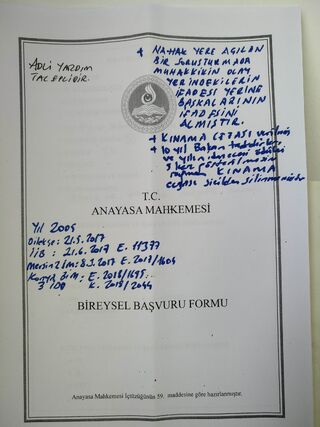 ADLİ YARDIM
TALEPLİDİR.
+ NAHAK YERE AÇILAN
BİR SORUŞTURMADA
MUHAKKİKİN OLAY
YERİNDEKİLERİN
İFADESİ YERİNE
BAŞKALARININ
İFADESİNİ
ALMIŞTIR.
+ KINAMA CEZASI verilmiş
+ 10 yıl Bakan
ve yılın
3 kez
rağmen KINAMA
cezası sicilden silinmemiştir
T.C.
ANAYASA MAHKEMESİ
Yıl 2009
Dilekçe: 21.5.2017
İİB: 21.6.2017 E. 11377
Mersin 2 İM: 8.9.2017 E. 2017/1604
Konya BİM: E. 2018/1695
3 İDD K. 2018/2044
BİREYSEL BAŞVURU FORMU
Anayasa Mahkemesi İçtüzüğünün 59. maddesine göre hazırlanmıştır.